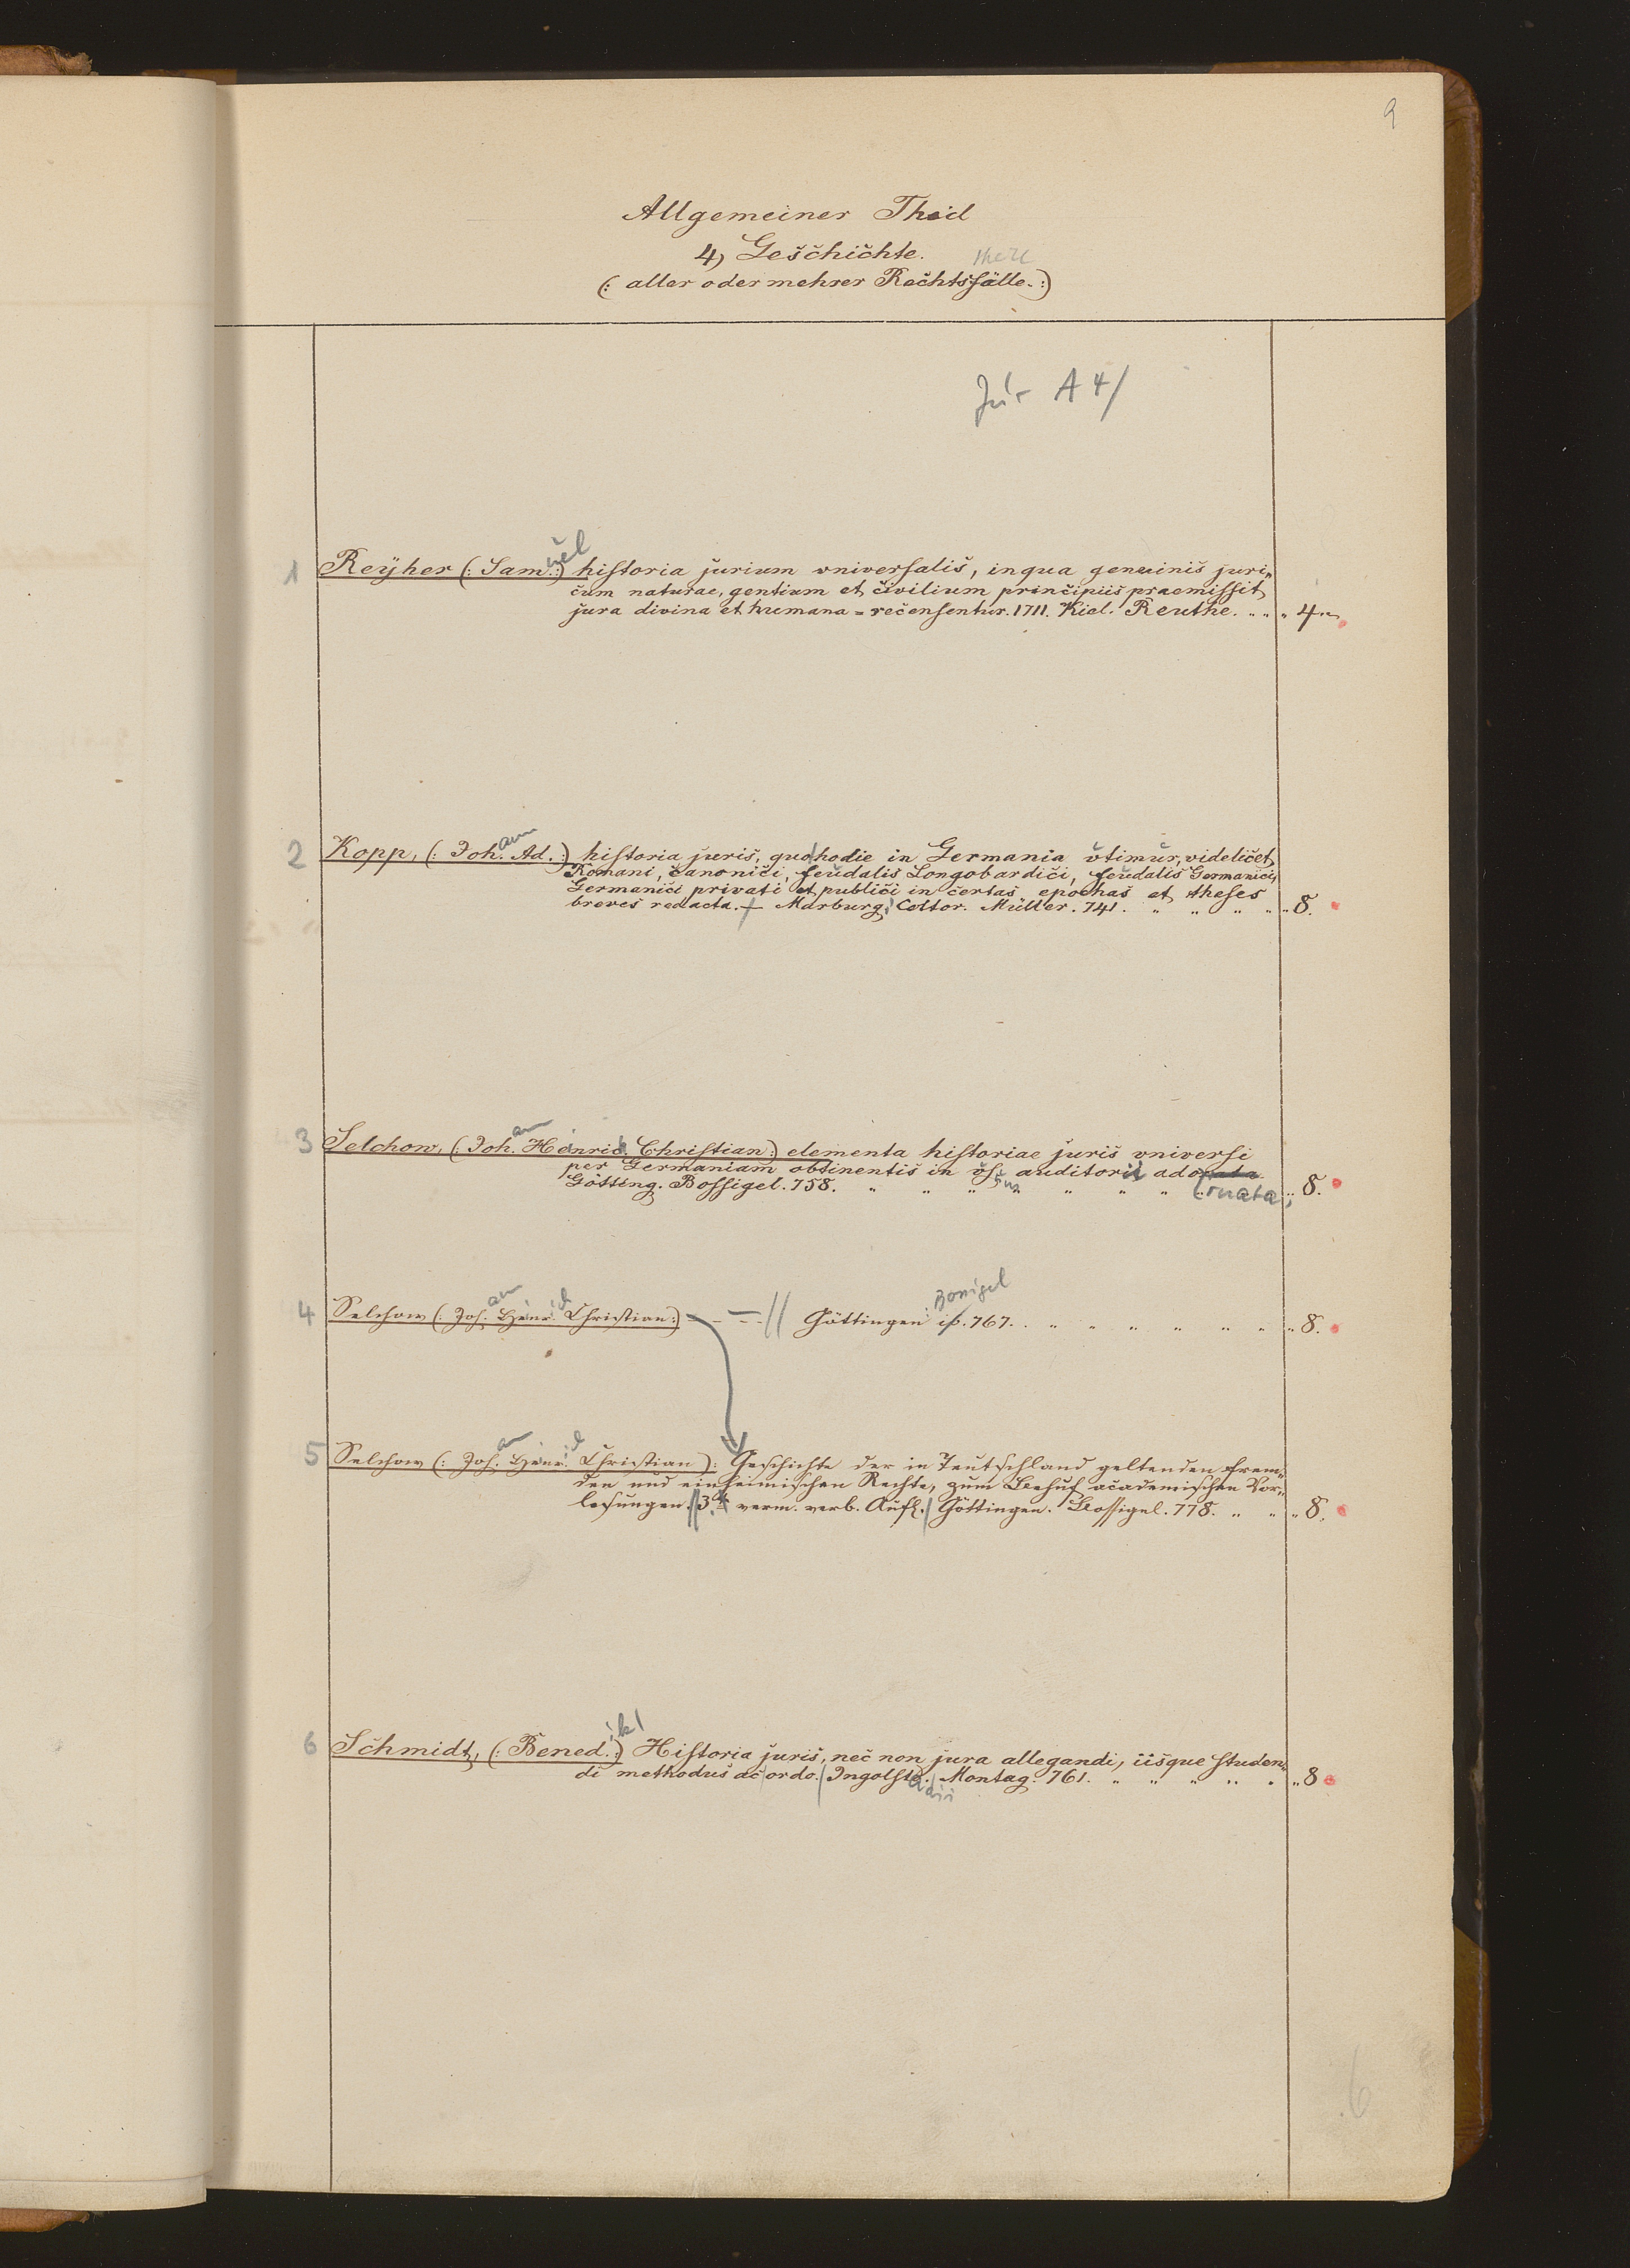 9
Allgemeiner Theil
4, Geschichte.
theile
(: aller oder mehrer Rechtsfälle. :)
Jur A 4/
1 Reyher (: Sam. :) uel historia jurium universalis, in qua genuinis juri„
cum naturae, gentium et civilium principiis praemissit
jura divina et humana = recensentur. 1711. Kiel. Reuthe. „ „ „ 4to
2 Kopp, (: Joh. ann Ad. :) historia juris, quo hodie in Germania utimur, videlicet
Romani, canonici, feudalis Longobardici, feudalis Germanici,
Germanici privati et publici in certas epochas et theses
breves redacta. Marburg, Cottor. Müller. 741. „ „ „ „ „ 8.
3 Selchow, (: Joh. ann Heinrich Christian :) elementa historiae juris universi
per Germaniam obtinentis in us. auditorii adornata
Götting. Bossigel. 758. „ „ „ „ „ „ „ 8.
4 Selchow (: Joh. ann Heinr. ich Christian :) — — // Göttingen ib. Bossigel 767. „ „ „ „ „ „ „ 8.
5 Selchow (: Joh. ann Heinr. ich Christian ): Geschichte der in Teutschland geltenden frem„
den und einheimischen Rechte, zum Behuf academischen Vor„
lesungen. // 3te verm. verb. Aufl. / Göttingen. Bossigel. 778. „ „ „ 8.
6 Schmidt, (: Bened. :) ikt Historia juris, nec non jura allegandi, iisque studen„
di methodus ac ordo. / Ingolst. adii Montag. 761. „ „ „ „ „ „ 8
6